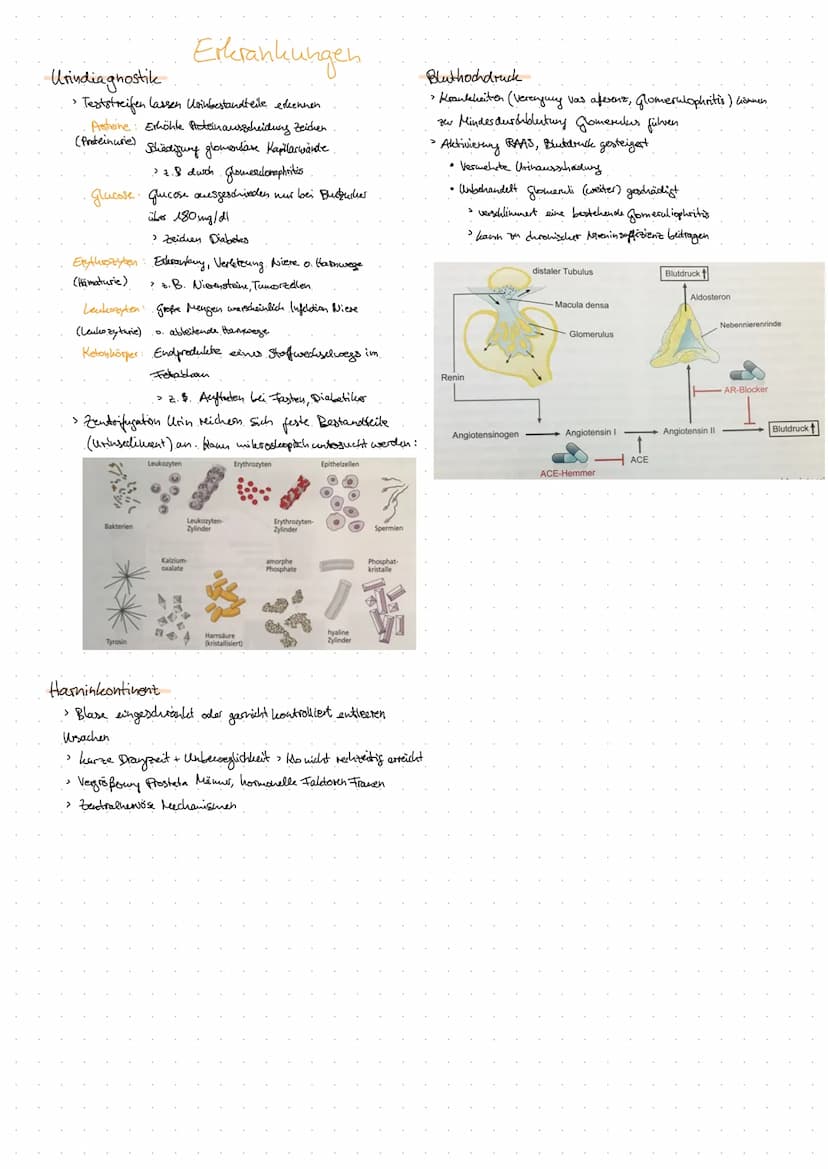 Erkrankungen
Urindiagnostik
> Teststreifen lassen Urinbestandteile erkennen
Proteine: Erhöhte Proteinausscheidung Zeichen
(Proteinurie) Schädigung glomeruläre Kapillarwände
> z.B durch Glomerulonephritis
Glucose: Glucose ausgeschieden nur bei Blutzucker
über 180mg/dl
> Zeichen Diabetes
Erythrozyten: Erkrankung, Verletzung Niere o. Harnwege
(Hämaturie) > z.B. Nierensteine, Tumorzellen
Leukozyten: Große Mengen warscheinlich Infektion Niere
(Leukozyturie) o. ableitende Harnwege
Ketonkörper: Endprodukte eines Stoffwechselwegs im
Fettabbau
> z.B. Auftreten bei Fasten, Diabetiker
> Zentrifugation Urin reichern sich feste Bestandteile
(Urinsediment) an. Kann mikroskopisch untersucht werden:
Leukozyten Erythrozyten Epithelzellen
Bakterien Leukozyten-Zylinder Erythrozyten-Zylinder Spermien
Kalzium-oxalate amorphe Phosphate Phosphat-kristalle
Tyrosin Harnsäure (kristallisiert) hyaline Zylinder
Harninkontinent
> Blase eingeschränkt oder garnicht kontrolliert entleeren
Ursachen
> kurze Drangzeit + Unbeweglichkeit > Klo nicht rechtzeitig erreicht
> Vergrößerung Prostata Männer, hormonelle Faktoren Frauen
> Zentralnervöse Mechanismen
Bluthochdruck
> Krankheiten (Verengung Vas aferenz, Glomerulophritis) können
zur Minderdurchblutung Glomerulus führen
> Aktivierung RAAS, Blutdruck gesteigert
• Vermehrte Urinausscheidung
• Unbehandelt Glomeruli (weiter) geschädigt
> verschlimmert eine bestehende Glomeruliophritis
> kann zu chronischer Niereninsuffizienz beitragen
distaler Tubulus Blutdruck ↑
Macula densa Aldosteron
Glomerulus Nebennierenrinde
Renin
AR-Blocker
Angiotensinogen Angiotensin I Angiotensin II Blutdruck ↑
ACE
ACE-Hemmer